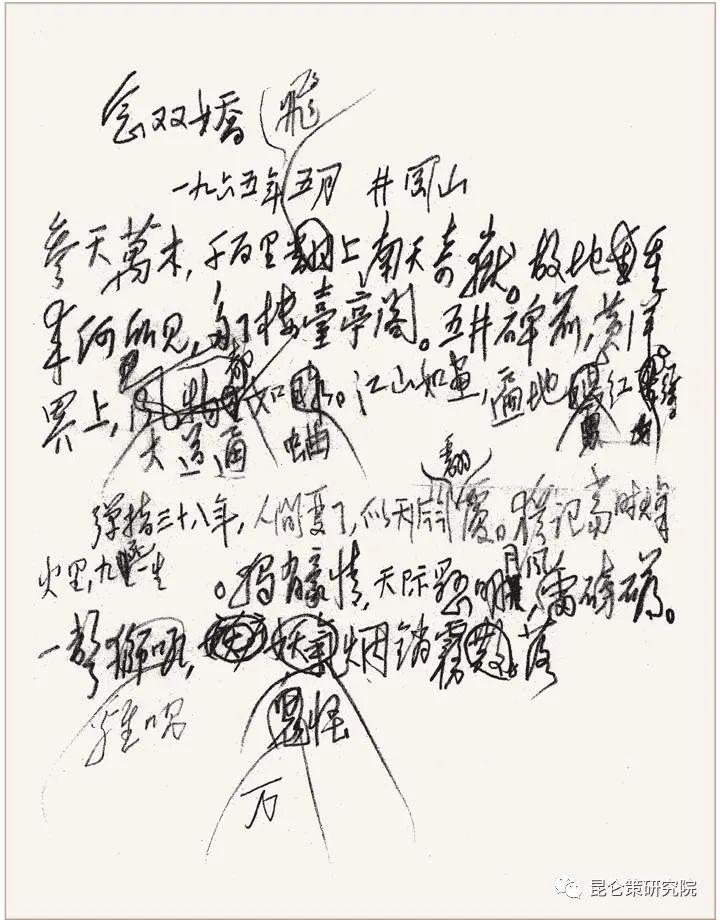 念双娇 飛
一九六五年五月 井冈山
参天萬木,千百里,上南天奇嶽。故地重
来何所见,多了楼臺亭阁。五井碑前,黄洋
界上,都如。江山如画,遍地红
大道通 曲
翻
弹指三十八年,人間变了,似天渊覆。犹记当时烽
火里,九死一生
。独有豪情,天际悬明月,风雷磅礴。
一声獅吼,妖氛烟銷霧落
雞唱
怪
万
昆仑策研究院